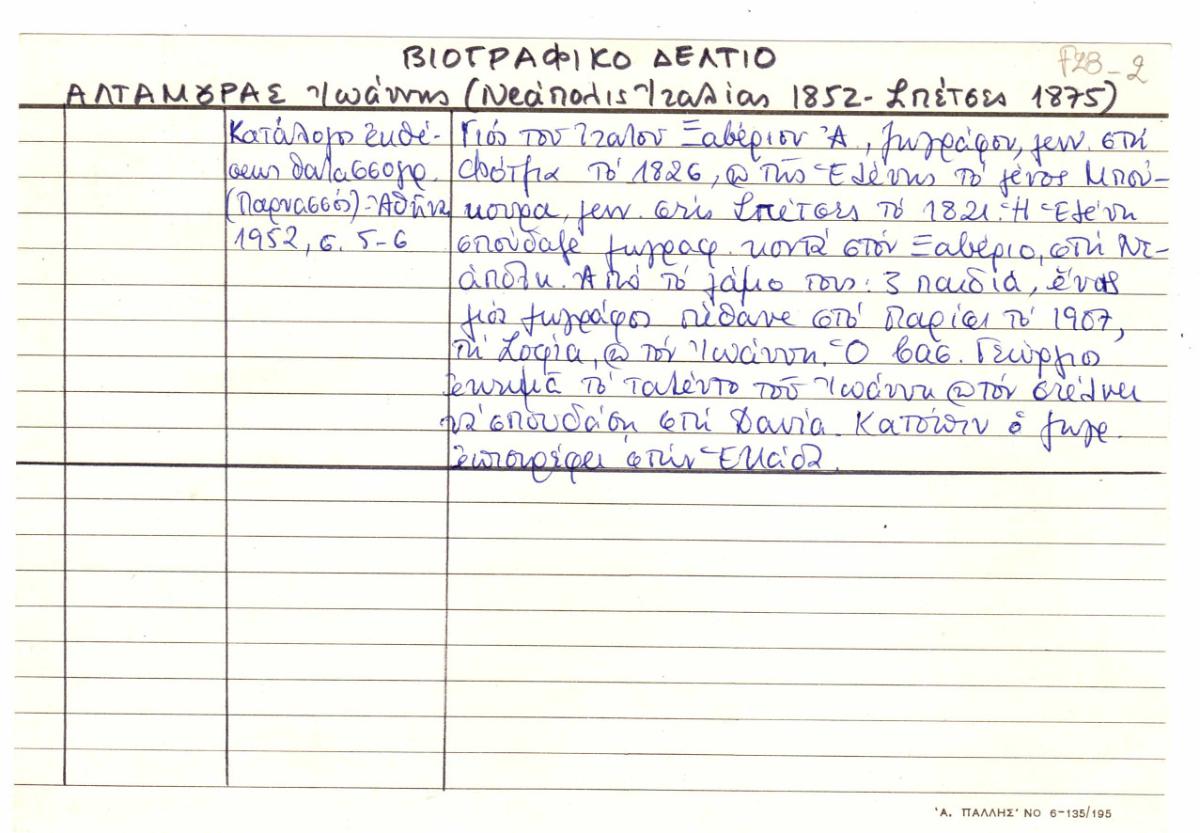 ΒΙΟΓΡΑΦΙΚΟ ΔΕΛΤΙΟ
ΑΛΤΑΜΟΥΡΑΣ Ἰωάννης (Νεάπολις Ἰταλίας 1852 - Σπέτσες 1875)
Κατάλογος ἐκθέ-
σεως θαλασσογρ.
(Παρνασσός) - Ἀθήνα
1952, σ. 5-6
Γιός του Ἰταλου Ξαβέριου Ἀ., ζωγράφου, γεν. στή
Φότζια τό 1826, @ τῆς Ἑλένης τό γένος Μπού-
κουρα, γεν. στίς Σπέτσες τό 1821. Ἡ Ἑλένη
σπούδαζε ζωγραφ. κοντά στόν Ξαβέριο, στή Νε-
άπολη. Ἀπό τό γάμο τους: 3 παιδιά, ἕνας
γιός ζωγράφος πέθανε στό Παρίσι τό 1907,
τή Σοφία, @ τόν Ἰωάννη. Ὁ βασ. Γεώργιος
ἐκτιμᾶ τό ταλέντο τοῦ Ἰωάννη @ τόν στέλνει
νά σπουδάση στή Δανία. Κατόπιν ὁ ζωγρ.
ἐπιστρέφει στήν Ἑλλάδα.
'Α. ΠΑΛΛΗΣ' ΝΟ 6-135/195